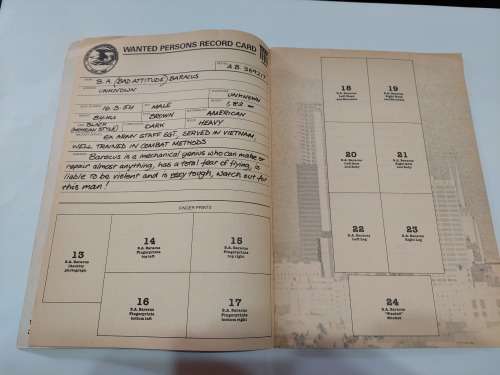 WANTED PERSONS RECORD CARD
B.A. (BAD ATTITUDE) BARACUS
UNKNOWN
UNKNOWN
MALE
BROWN
AMERICAN
BLACK
DARK
HEAVY
EX ARMY STAFF SGT, SERVED IN VIETNAM,
WELL TRAINED IN COMBAT METHODS
Baracus is a mechanical genius who can make or
repair almost anything, has a total fear of flying, is
liable to be violent and is very tough, watch out for
this man!
FINGER PRINTS
13
B.A. Baracus
14
B.A. Baracus
Fingerprints
top left
15
B.A. Baracus
Fingerprints
top right
16
B.A. Baracus
Fingerprints
bottom left
17
B.A. Baracus
Fingerprints
bottom right
18
B.A. Baracus
19
B.A. Baracus
20
B.A. Baracus
21
B.A. Baracus
22
B.A. Baracus
Left Leg
23
B.A. Baracus
Right Leg
24
B.A. Baracus
"Wanted"